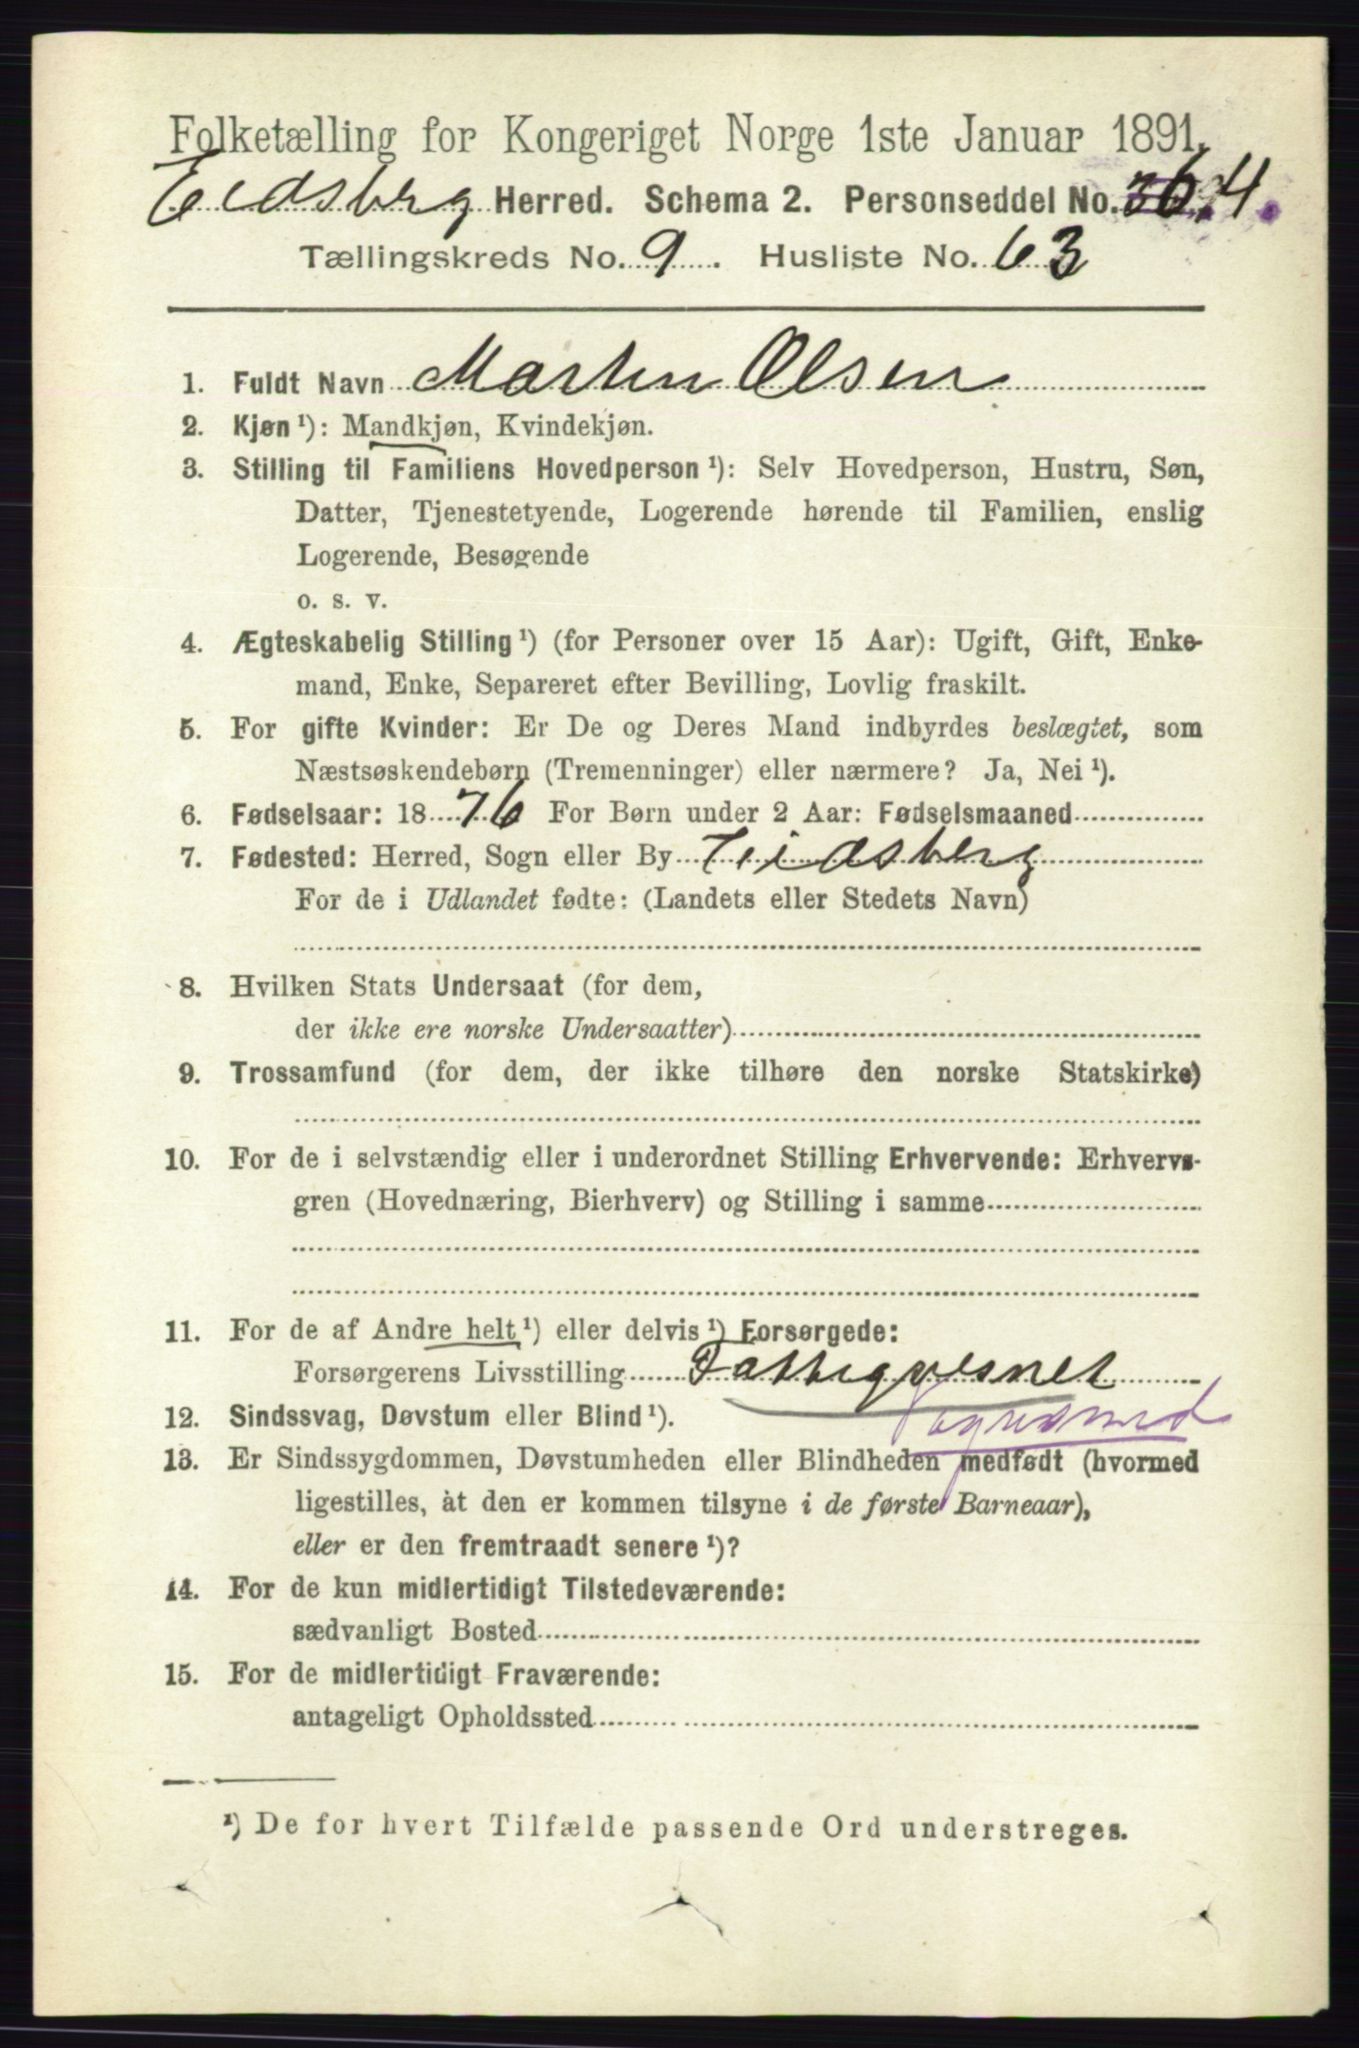 Folketælling for Kongeriget Norge 1ste Januar 1891.
Eidsberg Herred. Schema 2. Personseddel No. 364.
Tællingskreds No. 9. Husliste No. 63
1. Fuldt Navn Martin Olsen
2. Kjøn ¹): Mandkjøn, Kvindekjøn.
3. Stilling til Familiens Hovedperson ¹): Selv Hovedperson, Hustru, Søn,
Datter, Tjenestetyende, Logerende hørende til Familien, enslig
Logerende, Besøgende
o. s. v.
4. Ægteskabelig Stilling ¹) (for Personer over 15 Aar): Ugift, Gift, Enke-
mand, Enke, Separeret efter Bevilling, Lovlig fraskilt.
5. For gifte Kvinder: Er De og Deres Mand indbyrdes beslægtet, som
Næstsøskendebørn (Tremenninger) eller nærmere? Ja, Nei ¹).
6. Fødselsaar: 1876 For Børn under 2 Aar: Fødselsmaaned
7. Fødested: Herred, Sogn eller By Eidsberg
For de i Udlandet fødte: (Landets eller Stedets Navn)
8. Hvilken Stats Undersaat (for dem,
der ikke ere norske Undersaatter)
9. Trossamfund (for dem, der ikke tilhøre den norske Statskirke)
10. For de i selvstændig eller i underordnet Stilling Erhvervende: Erhvervs-
gren (Hovednæring, Bierhverv) og Stilling i samme
11. For de af Andre helt ¹) eller delvis ¹) Forsørgede:
Forsørgerens Livsstilling Fattigvesnet
12. Sindssvag, Døvstum eller Blind ¹).
13. Er Sindssygdommen, Døvstumheden eller Blindheden medfødt (hvormed
ligestilles, at den er kommen tilsyne i de første Barneaar),
eller er den fremtraadt senere ¹)?
14. For de kun midlertidigt Tilstedeværende:
sædvanligt Bosted
15. For de midlertidigt Fraværende:
antageligt Opholdssted
¹) De for hvert Tilfælde passende Ord understreges.